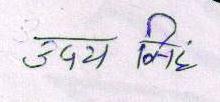 उदय सिंह